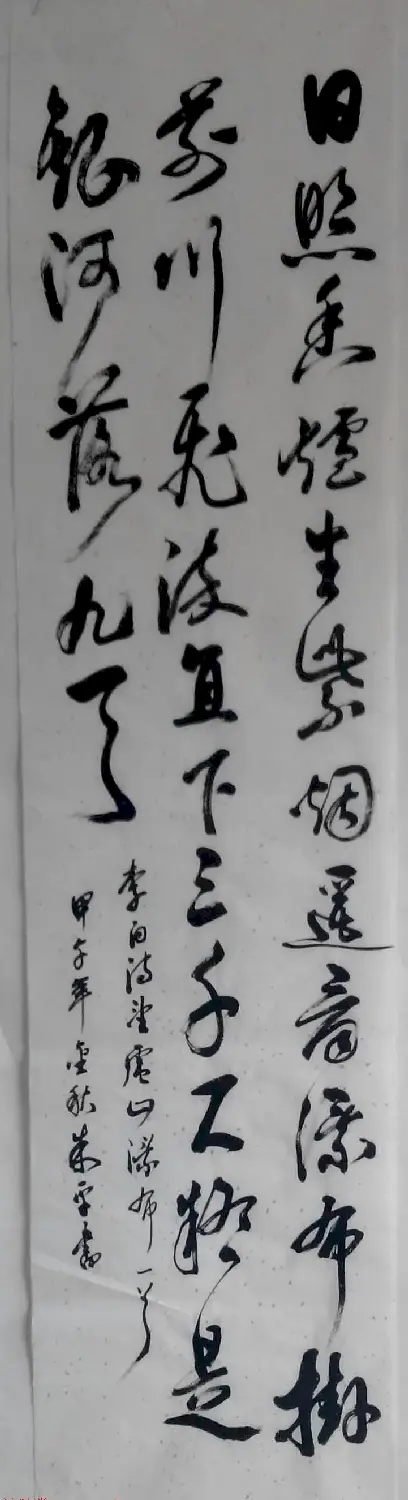 日照香爐生紫烟遥看瀑布掛
前川飛流直下三千尺疑是
銀河落九天
李白詩望廬山瀑布一首
甲午年金秋朱平書